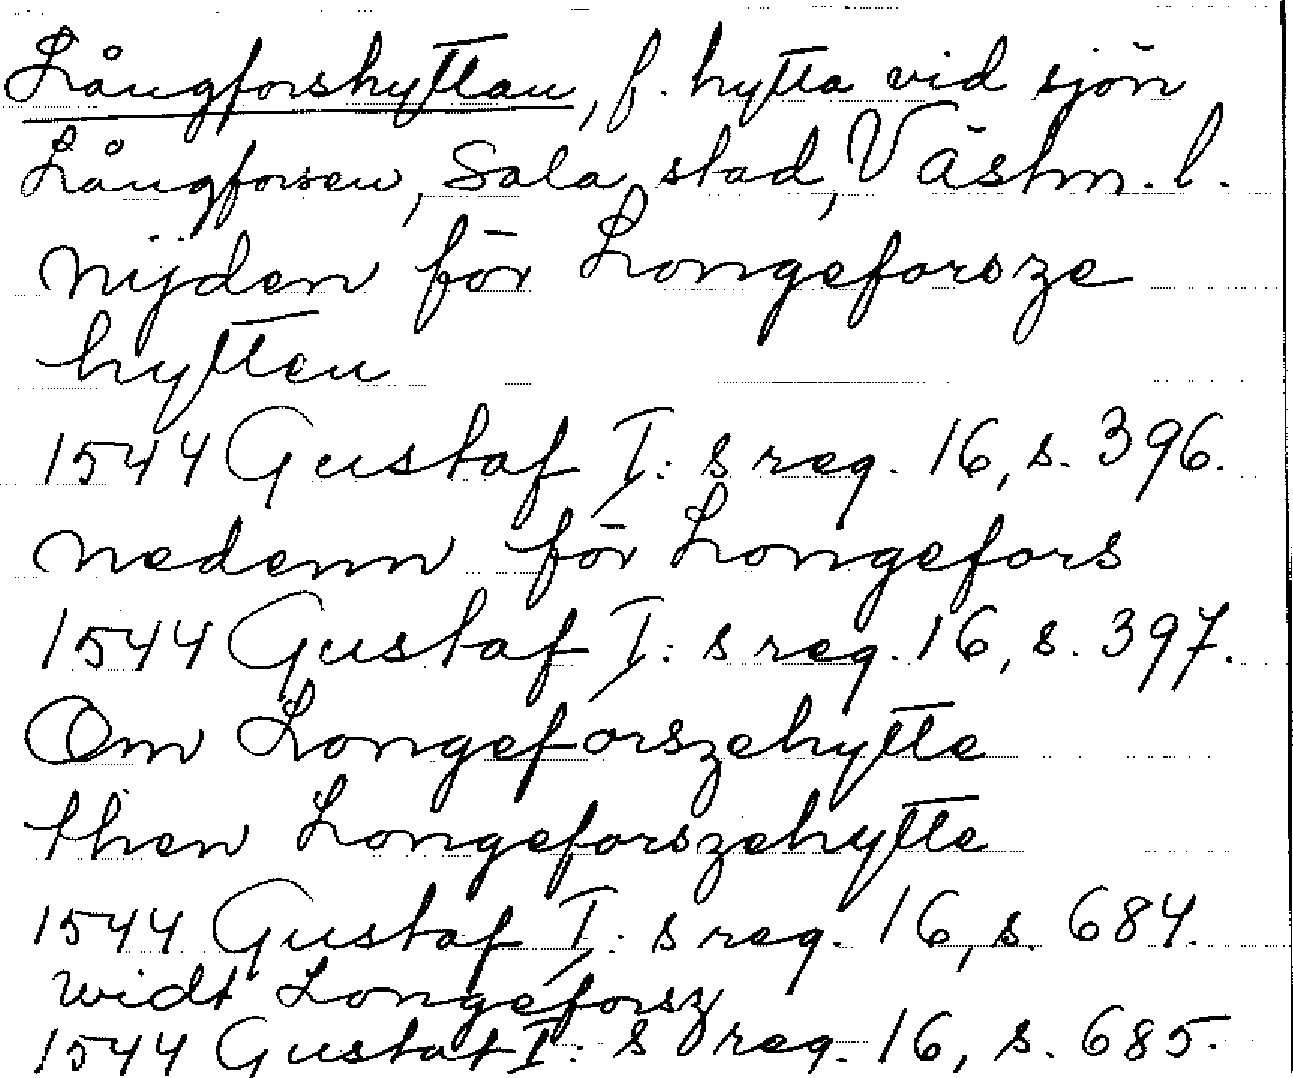 Långforshyttan, f. hytta vid sjön
Långforsen, Sala stad, Västm. l.
nijden för Longeforsze
hytten
1544 Gustaf I:s reg. 16, s. 396.
nedenn för Longefors
1544 Gustaf I:s reg. 16, s. 397.
Om Longeforszehytte
then Longeforszehytte
1544 Gustaf I:s reg. 16, s. 684.
widt Longeforsz
1544 Gustaf I:s reg. 16, s. 685.